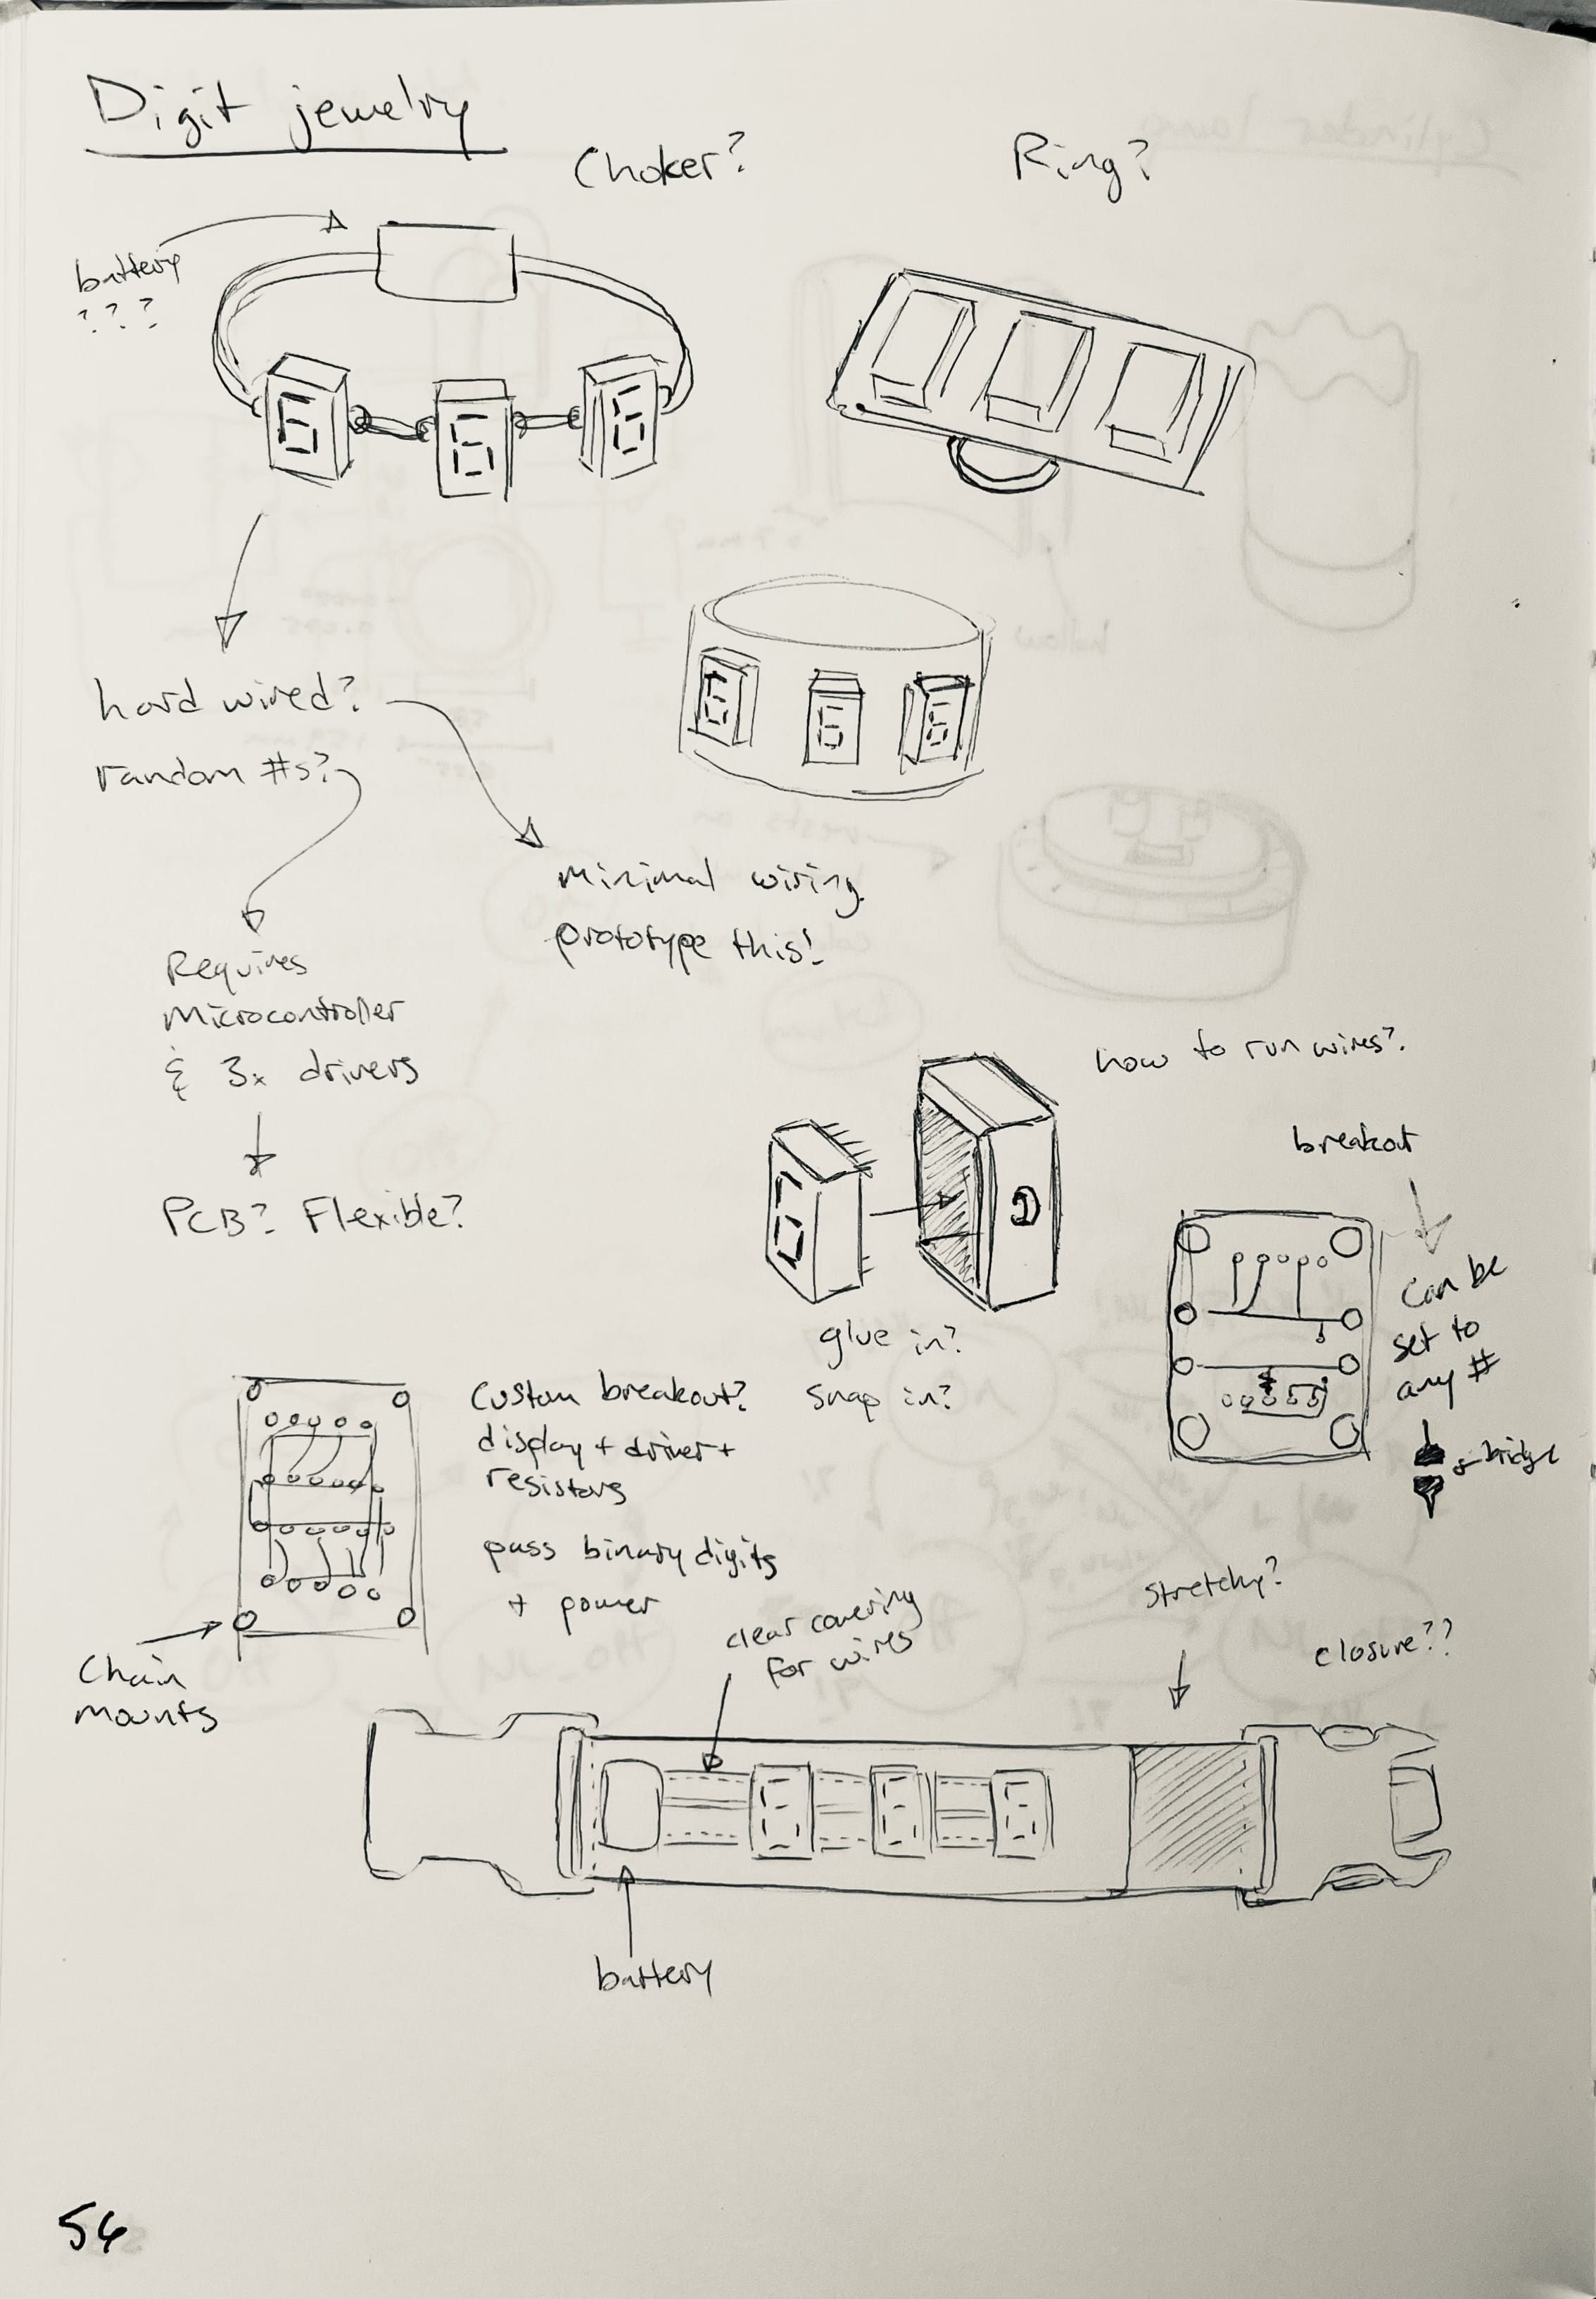 Digit jewelry
Choker?
Ring?
battery
???
6 6 6
6 6 6
hard wired?
random #s?
minimal wiring.
prototype this!
Requires
microcontroller
& 3x drivers
PCB? Flexible?
how to run wires?
glue in?
snap in?
breakout
can be
set to
any #
bridge
custom breakout?
display + driver +
resistors
pass binary digits
+ power
chain
mounts
clear covering
for wires
stretchy?
closure??
6 6 6
battery
56